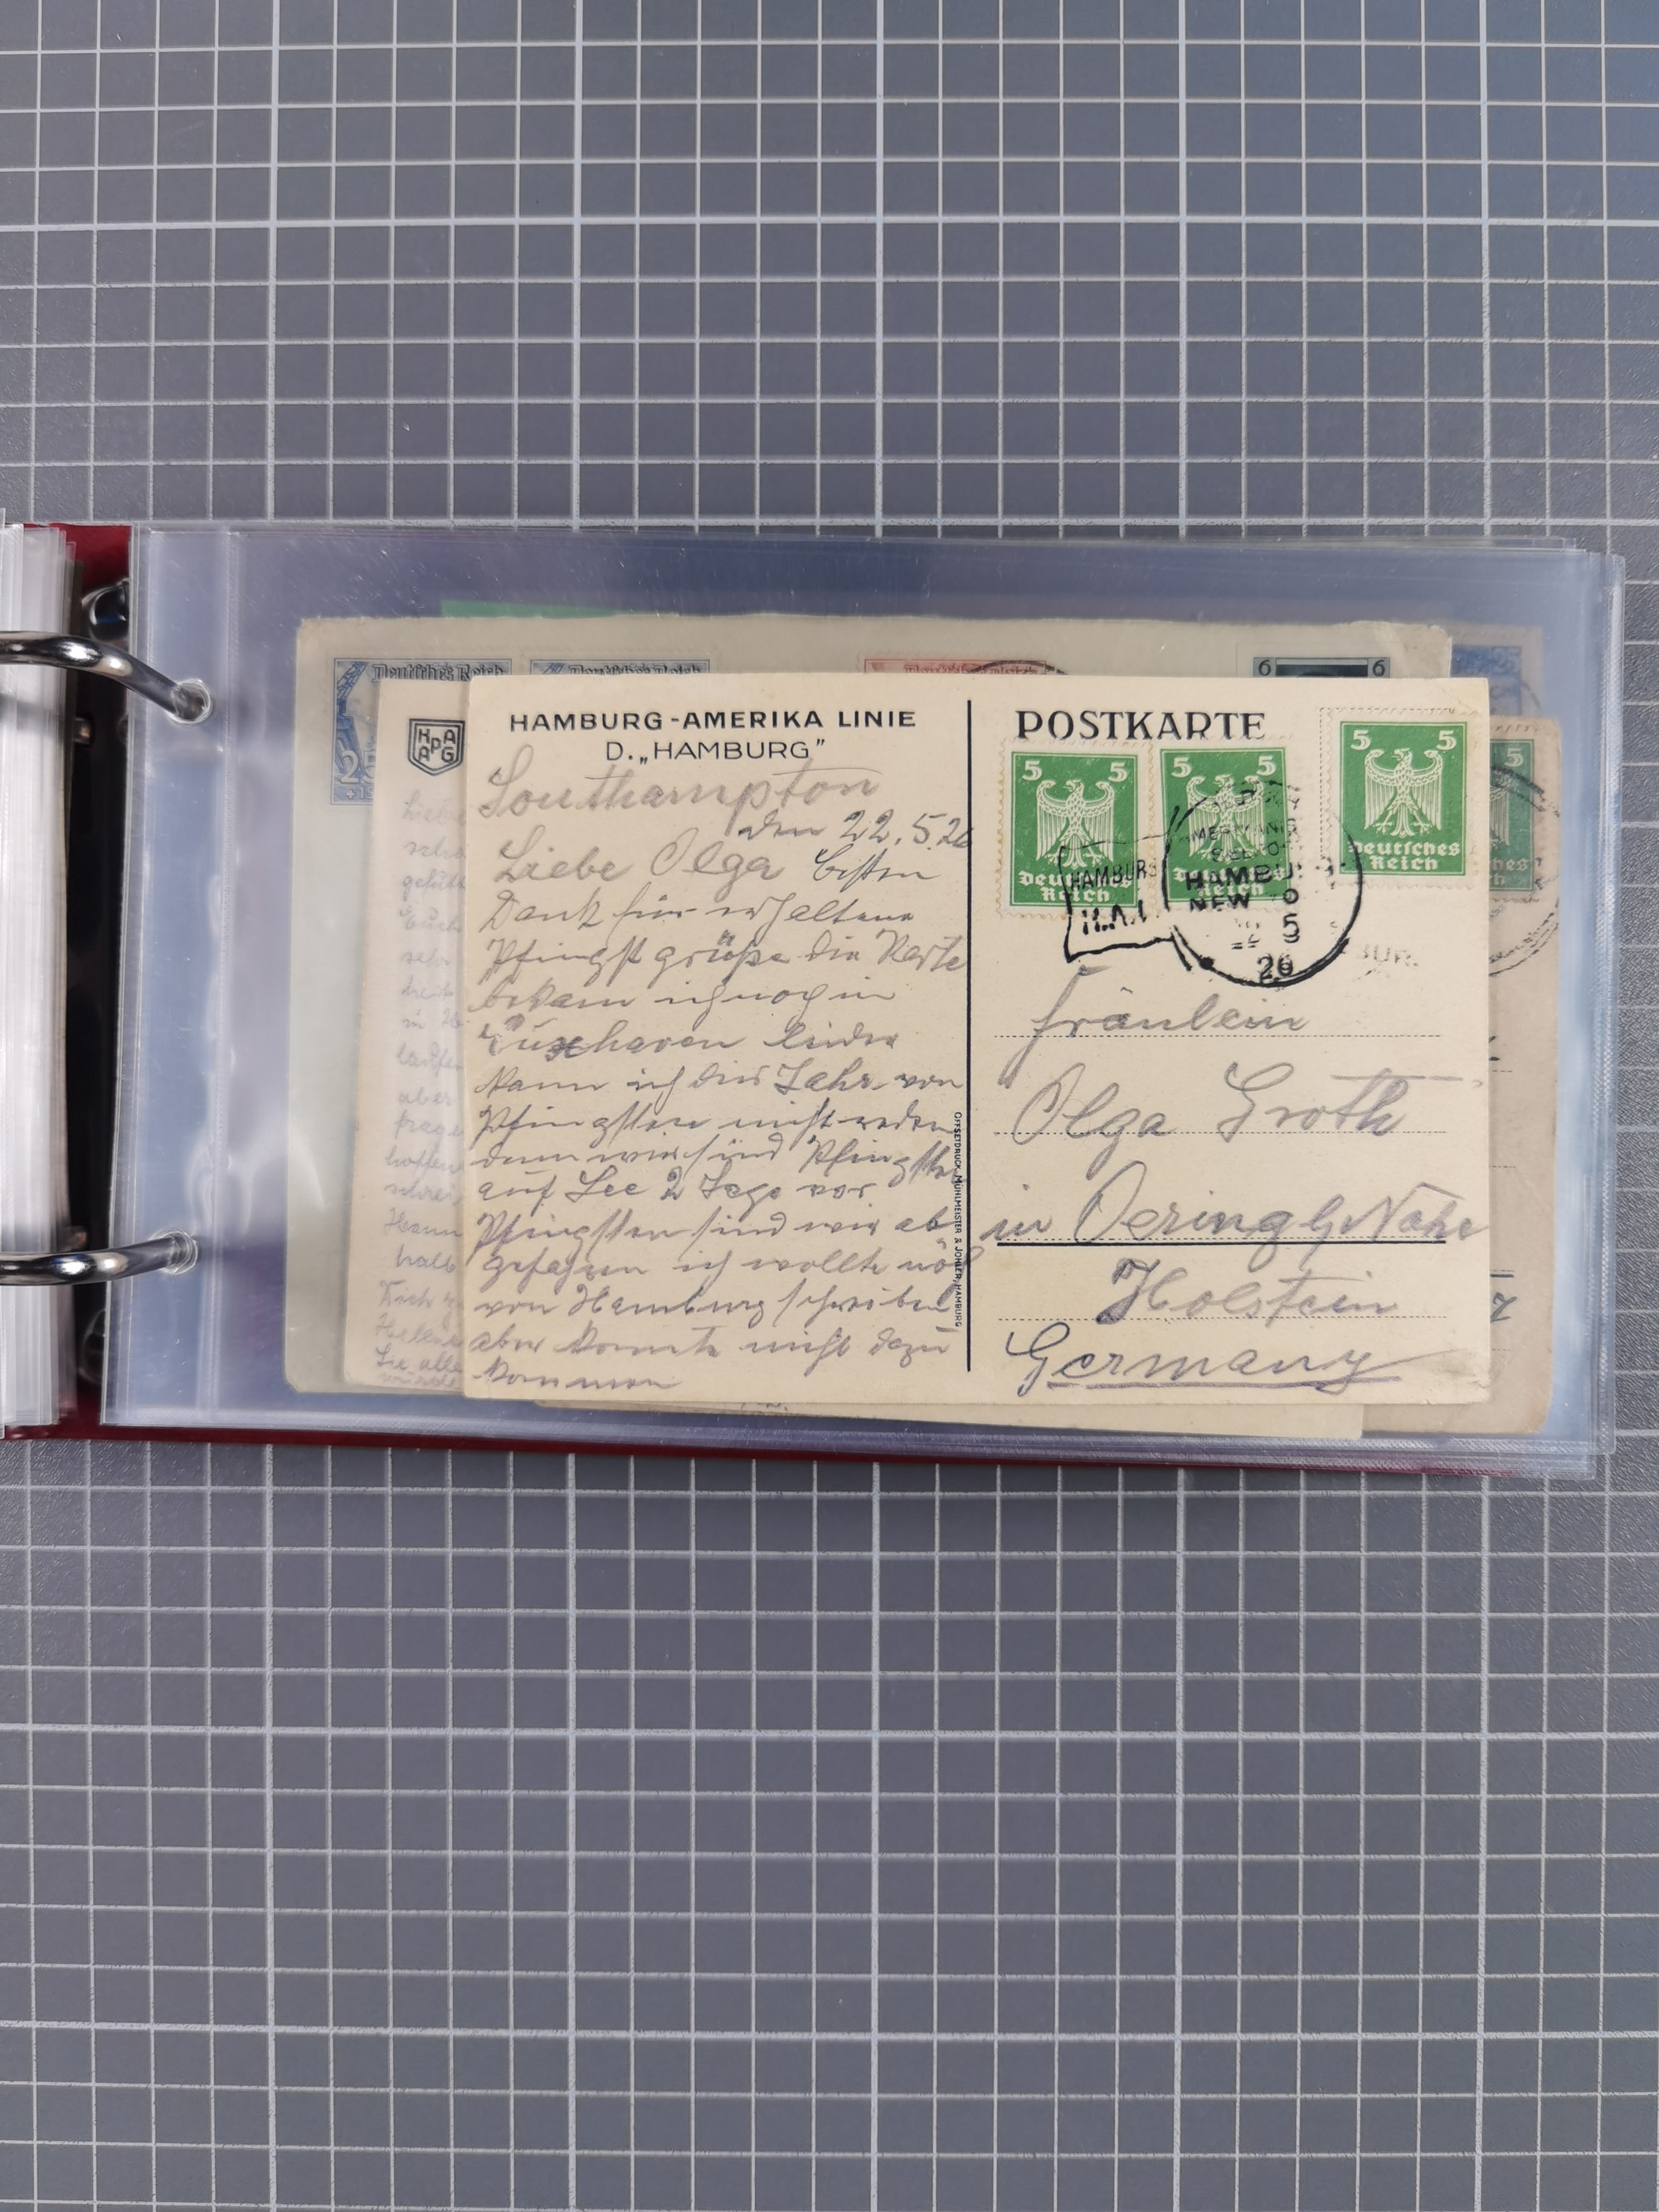 HAMBURG-AMERIKA LINIE
D. „HAMBURG"
Southampton
den 22.5.26
Liebe Olga besten
Dank für erhaltene
Pfingstgrüße die Karte
bekam ich noch in
Cuxhaven leider
kann ich dies Jahr von
Pfingsten nicht reden
denn wir sind Pfingsten
auf See 2 Tage vor
Pfingsten sind wir ab
gefahren ich wollte noch
von Hamburg schreiben
aber konnte nicht dazu
kommen
OFFSETDRUCK MÜHLMEISTER & JOHLER, HAMBURG
POSTKARTE
5 5
Deutsches
Reich
5 5
Deutsches
Reich
5 5
Deutsches
Reich
HAMBURG
NEW
5
26
Fräulein
Olga Groth
in Oering b/ Nahe
Holstein
Germany
HAPAG
Deutsches Reich
Deutsches Reich
6 6
5